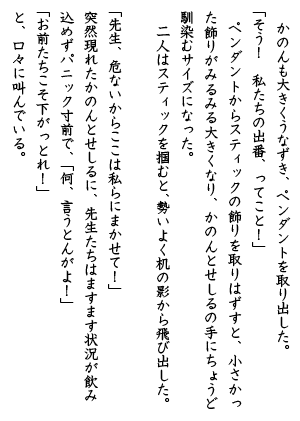 かのんも大きくうなずき、ペンダントを取り出した。
「そう！　私たちの出番、ってこと！」
ペンダントからスティックの飾りを取りはずすと、小さかっ
た飾りがみるみる大きくなり、かのんとせしるの手にちょうど
馴染むサイズになった。
二人はスティックを掴むと、勢いよく机の影から飛び出した。
「先生、危ないからここは私らにまかせて！」
突然現れたかのんとせしるに、先生たちはますます状況が飲み
込めずパニック寸前で、「何、言うとんがよ！」
「お前たちこそ下がっとれ！」
と、口々に叫んでいる。